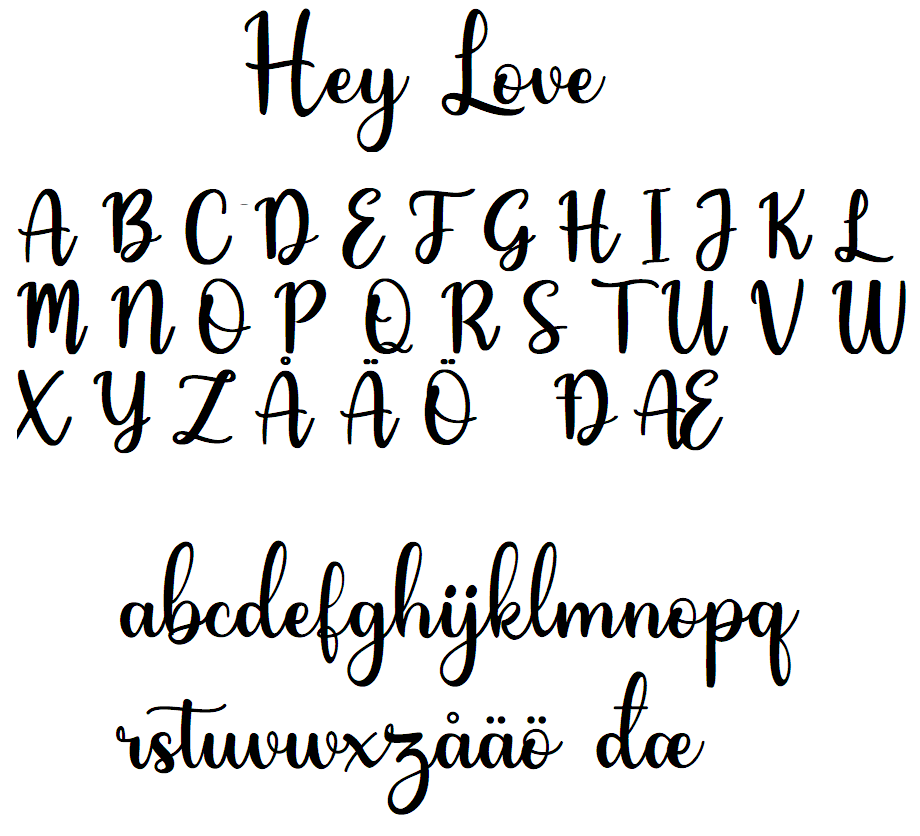 Hey Love
A B C D E F G H I J K L
M N O P Q R S T U V W
X Y Z Å Ä Ö Đ Æ
abcdefghijklmnopq
rstuvwxzåäö đæ